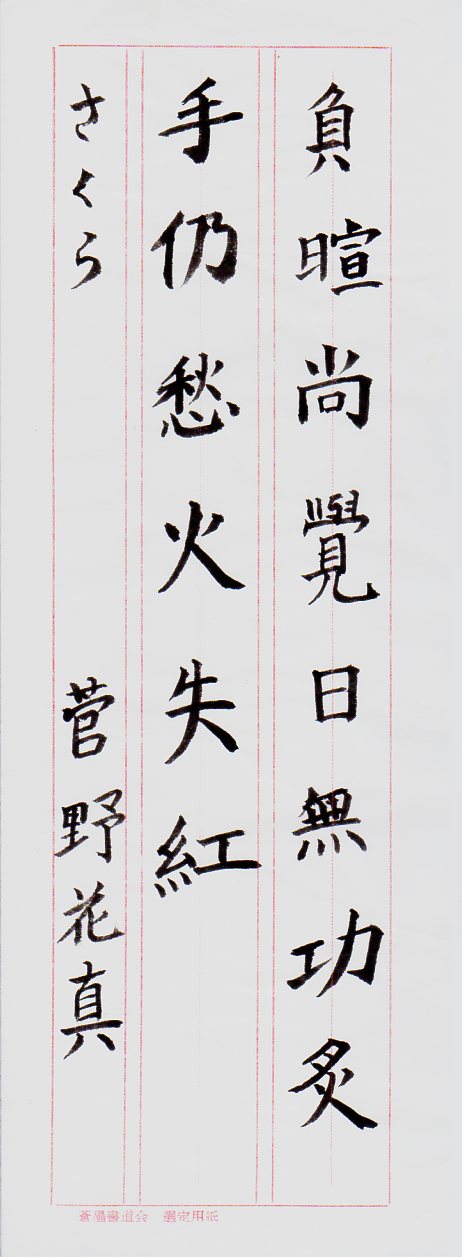 負暄尚覺日無功炙
手仍愁火失紅
さくら 菅野花真
蒼墨書道会 選定用紙